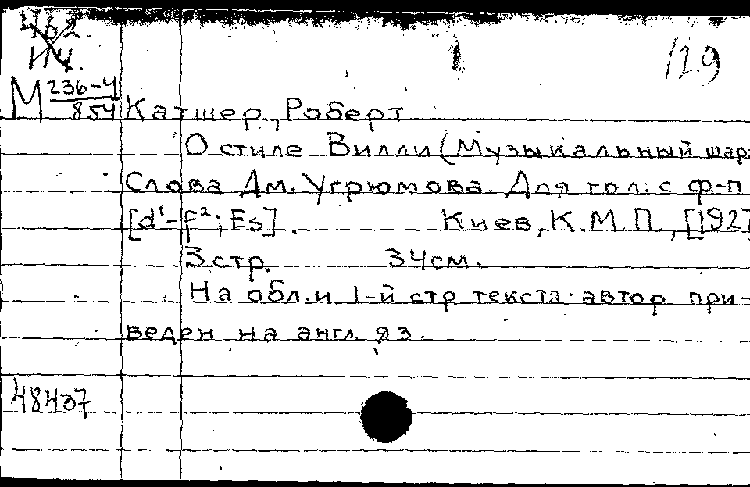 462.
114.
/29
М 236-4
854
Катшер, Роберт
О стиле Вилли (Музыкальный шар
Слова Дм. Угрюмова. Для гол. с ф-п
[d¹-f²; Es]. Киев, К.М.П., [192
3 стр. 34 см.
На обл. и 1-й стр. текста автор при-
веден на англ. яз.
48407